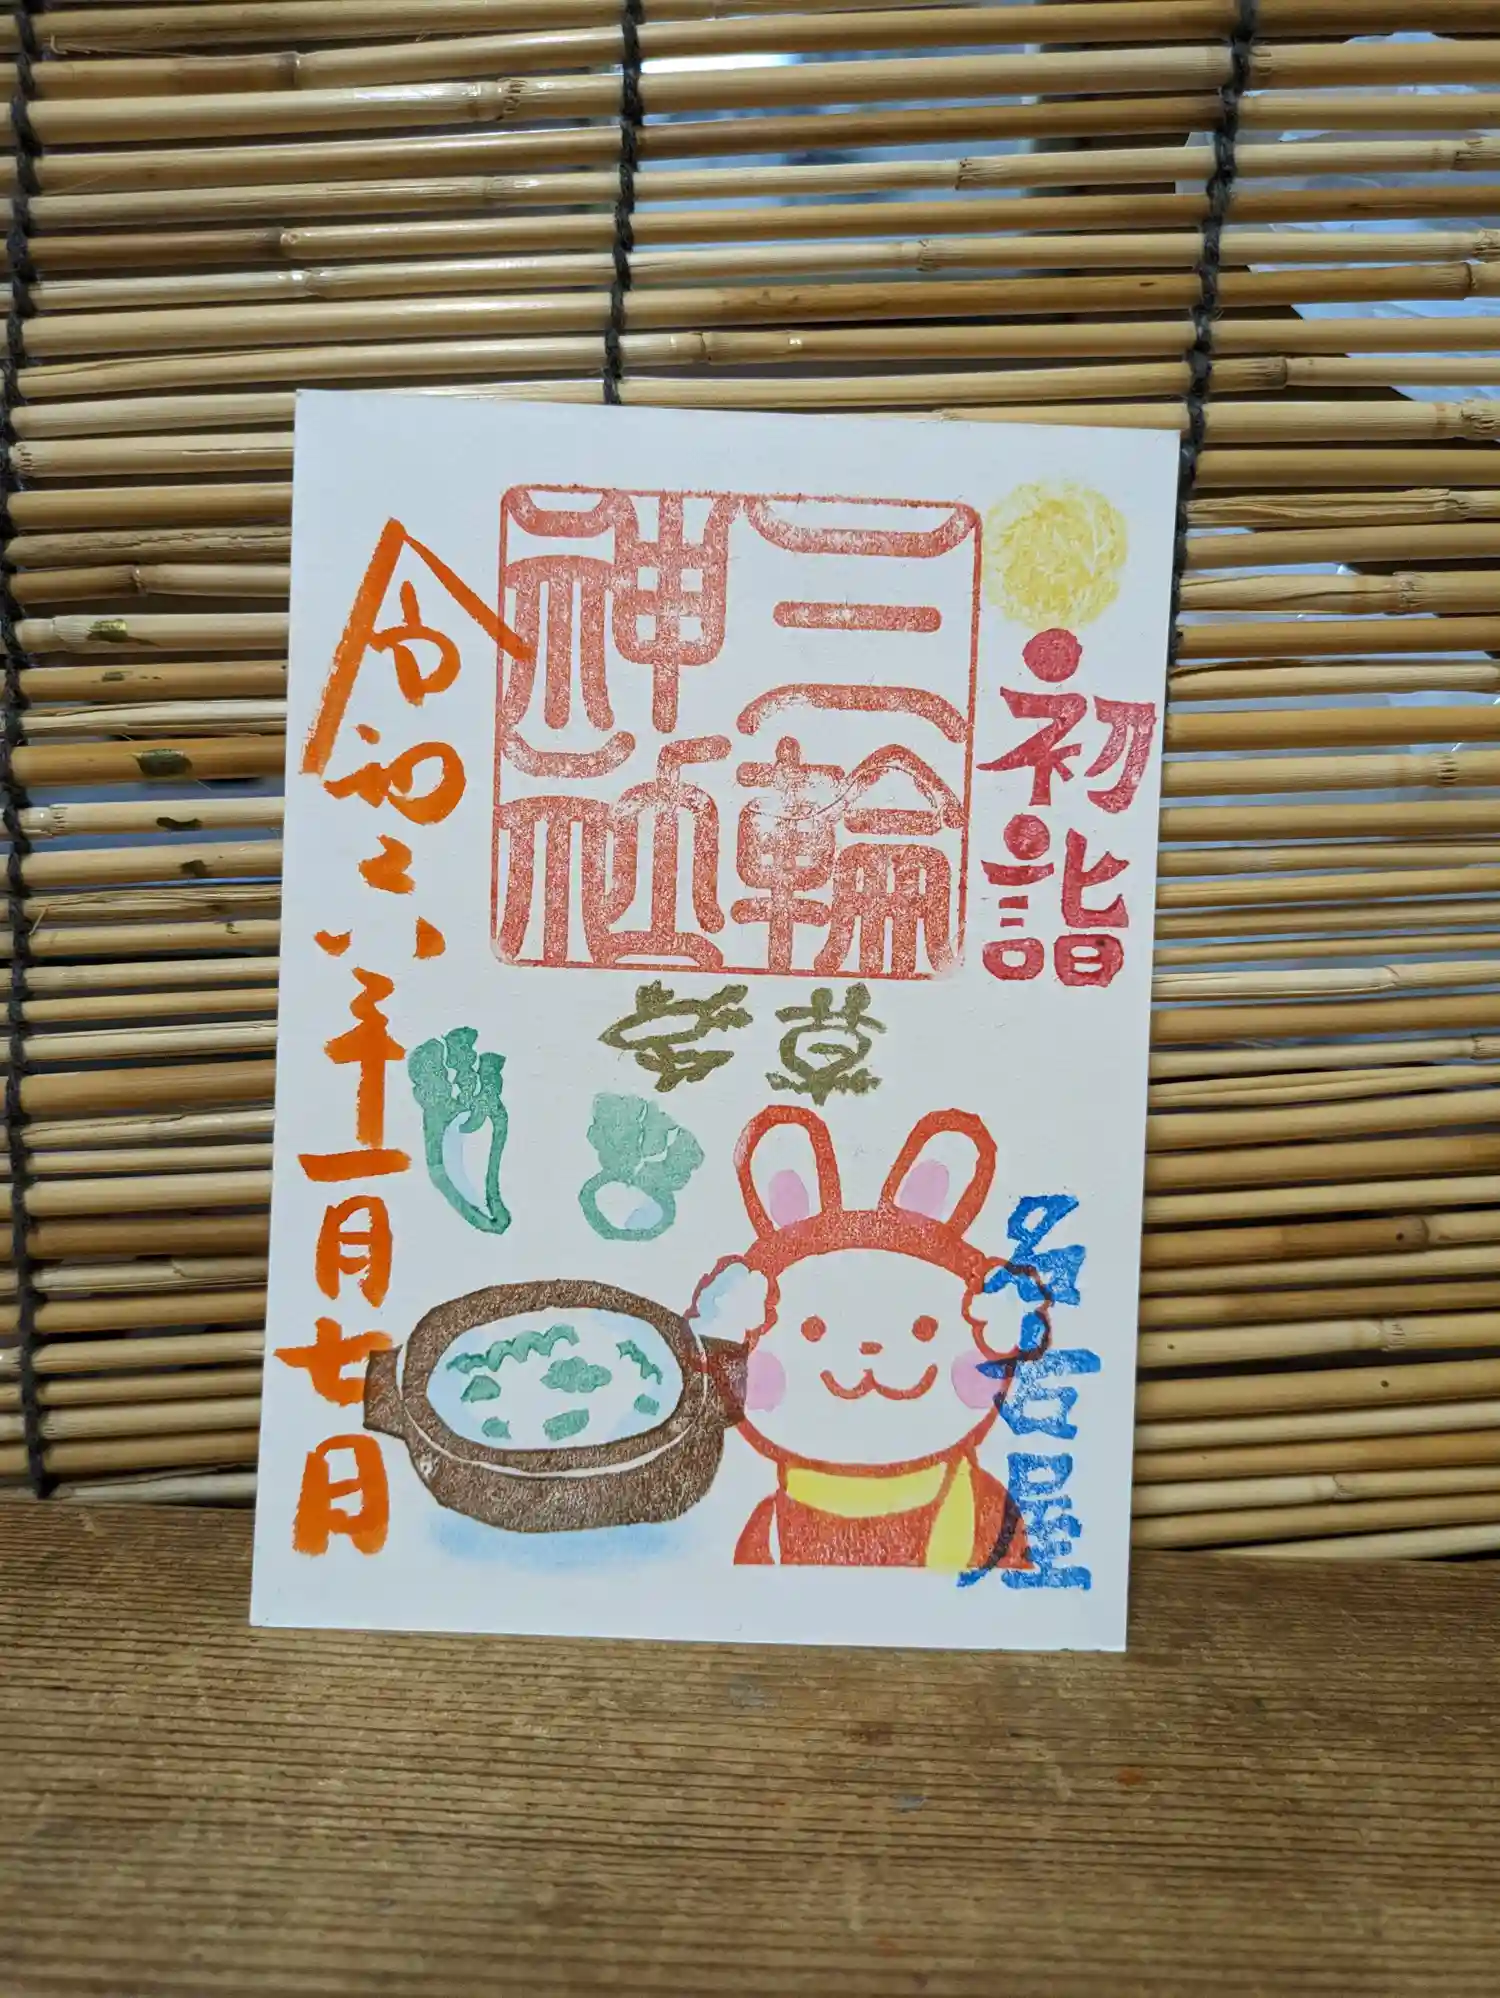 初詣
三輪
神社
名古屋
令和六年一月七日